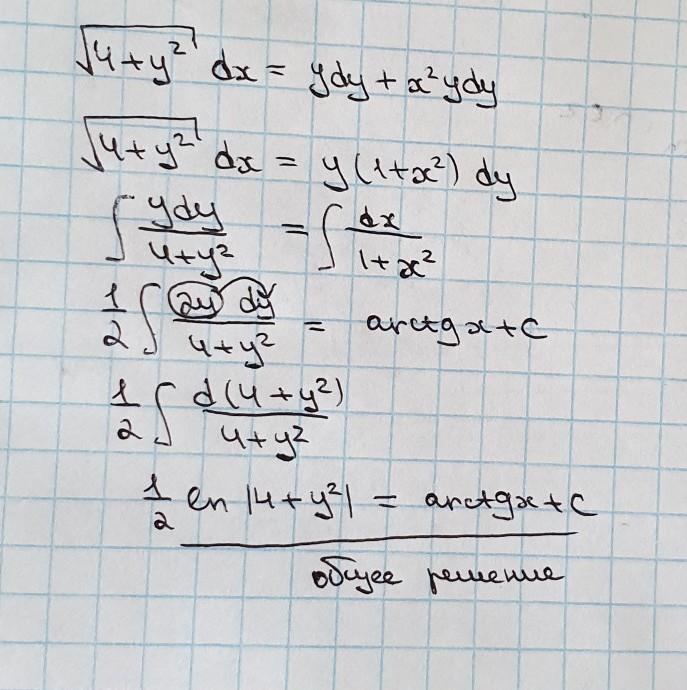 √4+y² dx = ydy + x²ydy
√4+y² dx = y(1+x²) dy
∫ ydy/4+y² = ∫ dx/1+x²
1/2 ∫ 2y dy/4+y² = arctgx+C
1/2 ∫ d(4+y²)/4+y²
1/2 ln |4+y²| = arctgx+C
общее решение